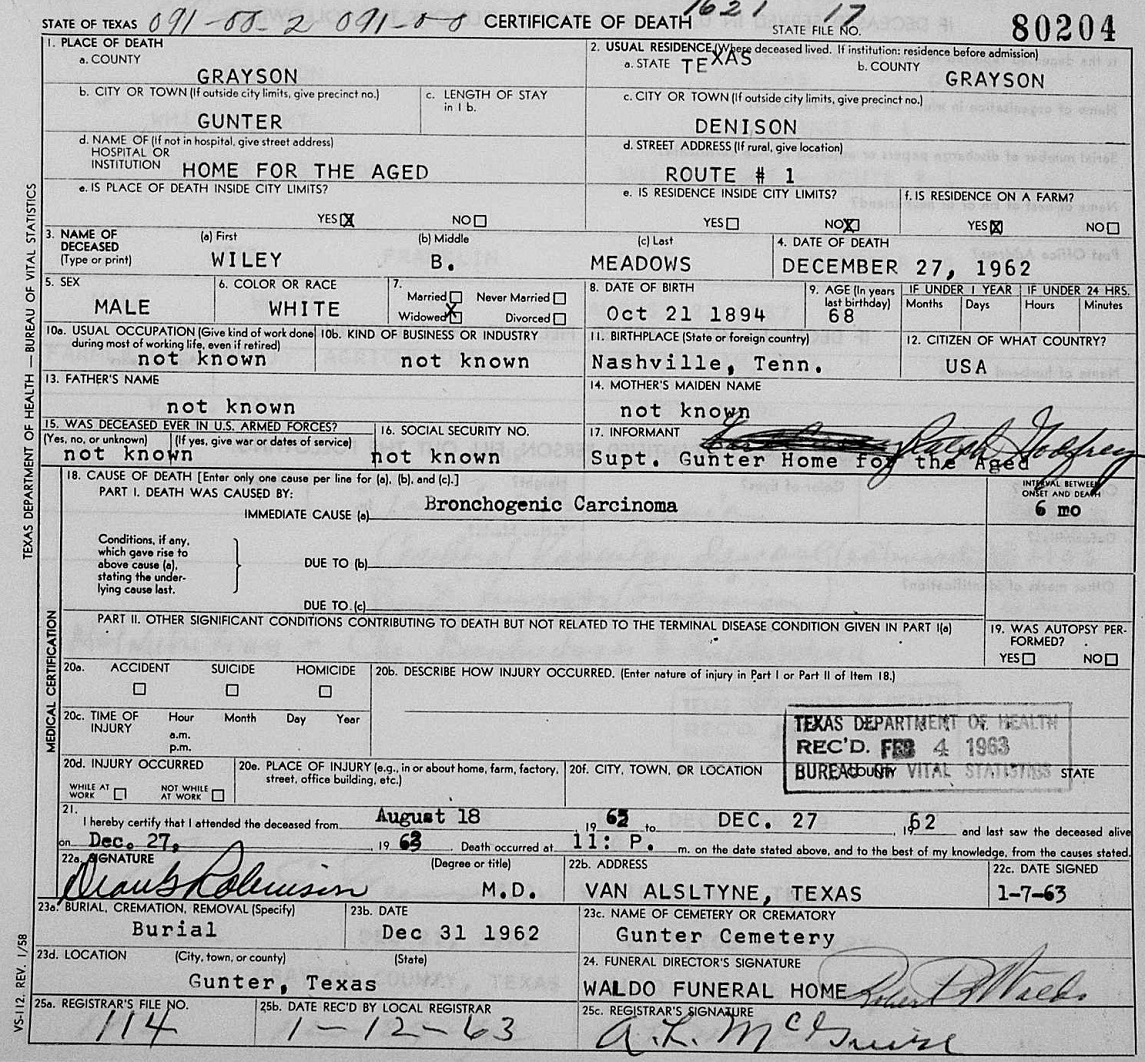 STATE OF TEXAS 091-00-2 091-00 CERTIFICATE OF DEATH 1621 17 STATE FILE NO. 80204
1. PLACE OF DEATH
a. COUNTY
GRAYSON
2. USUAL RESIDENCE (Where deceased lived. If institution: residence before admission)
a. STATE TEXAS b. COUNTY
GRAYSON
b. CITY OR TOWN (If outside city limits, give precinct no.)
GUNTER
c. LENGTH OF STAY
in 1 b.
c. CITY OR TOWN (If outside city limits, give precinct no.)
DENISON
d. NAME OF (If not in hospital, give street address)
HOSPITAL OR
INSTITUTION HOME FOR THE AGED
d. STREET ADDRESS (If rural, give location)
ROUTE # 1
e. IS PLACE OF DEATH INSIDE CITY LIMITS?
YES X NO
e. IS RESIDENCE INSIDE CITY LIMITS?
YES NO X
f. IS RESIDENCE ON A FARM?
YES X NO
3. NAME OF
DECEASED
(Type or print)
(a) First
WILEY
(b) Middle
B.
(c) Last
MEADOWS
4. DATE OF DEATH
DECEMBER 27, 1962
5. SEX
MALE
6. COLOR OR RACE
WHITE
7.
Married Never Married
Widowed X Divorced
8. DATE OF BIRTH
Oct 21 1894
9. AGE (In years
last birthday)
68
IF UNDER 1 YEAR
Months Days
IF UNDER 24 HRS.
Hours Minutes
10a. USUAL OCCUPATION (Give kind of work done
during most of working life, even if retired)
not known
10b. KIND OF BUSINESS OR INDUSTRY
not known
11. BIRTHPLACE (State or foreign country)
Nashville, Tenn.
12. CITIZEN OF WHAT COUNTRY?
USA
13. FATHER'S NAME
not known
14. MOTHER'S MAIDEN NAME
not known
15. WAS DECEASED EVER IN U.S. ARMED FORCES?
(Yes, no, or unknown) (If yes, give war or dates of service)
not known
16. SOCIAL SECURITY NO.
not known
17. INFORMANT Ralph Godfrey
Supt. Gunter Home for the Aged
18. CAUSE OF DEATH [Enter only one cause per line for (a), (b), and (c).]
PART I. DEATH WAS CAUSED BY:
IMMEDIATE CAUSE (a) Bronchogenic Carcinoma
INTERVAL BETWEEN
ONSET AND DEATH
6 mo
Conditions, if any,
which gave rise to
above cause (a),
stating the under-
lying cause last.
DUE TO (b)
DUE TO (c)
PART II. OTHER SIGNIFICANT CONDITIONS CONTRIBUTING TO DEATH BUT NOT RELATED TO THE TERMINAL DISEASE CONDITION GIVEN IN PART I(a)
19. WAS AUTOPSY PER-
FORMED?
YES NO
20a. ACCIDENT SUICIDE HOMICIDE
20b. DESCRIBE HOW INJURY OCCURRED. (Enter nature of injury in Part I or Part II of Item 18.)
20c. TIME OF
INJURY
Hour Month Day Year
a.m.
p.m.
TEXAS DEPARTMENT OF HEALTH
REC'D. FEB 4 1963
BUREAU OF VITAL STATISTICS
20d. INJURY OCCURRED
WHILE AT
WORK
NOT WHILE
AT WORK
20e. PLACE OF INJURY (e.g., in or about home, farm, factory,
street, office building, etc.)
20f. CITY, TOWN, OR LOCATION COUNTY STATE
21.
I hereby certify that I attended the deceased from August 18 19 62 to DEC. 27 1962 and last saw the deceased alive
on Dec. 27, 19 63. Death occurred at 11: P. m. on the date stated above, and to the best of my knowledge, from the causes stated.
22a. SIGNATURE (Degree or title)
Robinson M.D.
22b. ADDRESS
VAN ALSLTYNE, TEXAS
22c. DATE SIGNED
1-7-63
23a. BURIAL, CREMATION, REMOVAL (Specify)
Burial
23b. DATE
Dec 31 1962
23c. NAME OF CEMETERY OR CREMATORY
Gunter Cemetery
23d. LOCATION (City, town, or county) (State)
Gunter, Texas
24. FUNERAL DIRECTOR'S SIGNATURE
WALDO FUNERAL HOME Robert Waldo
25a. REGISTRAR'S FILE NO.
114
25b. DATE REC'D BY LOCAL REGISTRAR
1-12-63
25c. REGISTRAR'S SIGNATURE
A.L. McGuire
TEXAS DEPARTMENT OF HEALTH — BUREAU OF VITAL STATISTICS
MEDICAL CERTIFICATION
VS-112. REV. 1/58